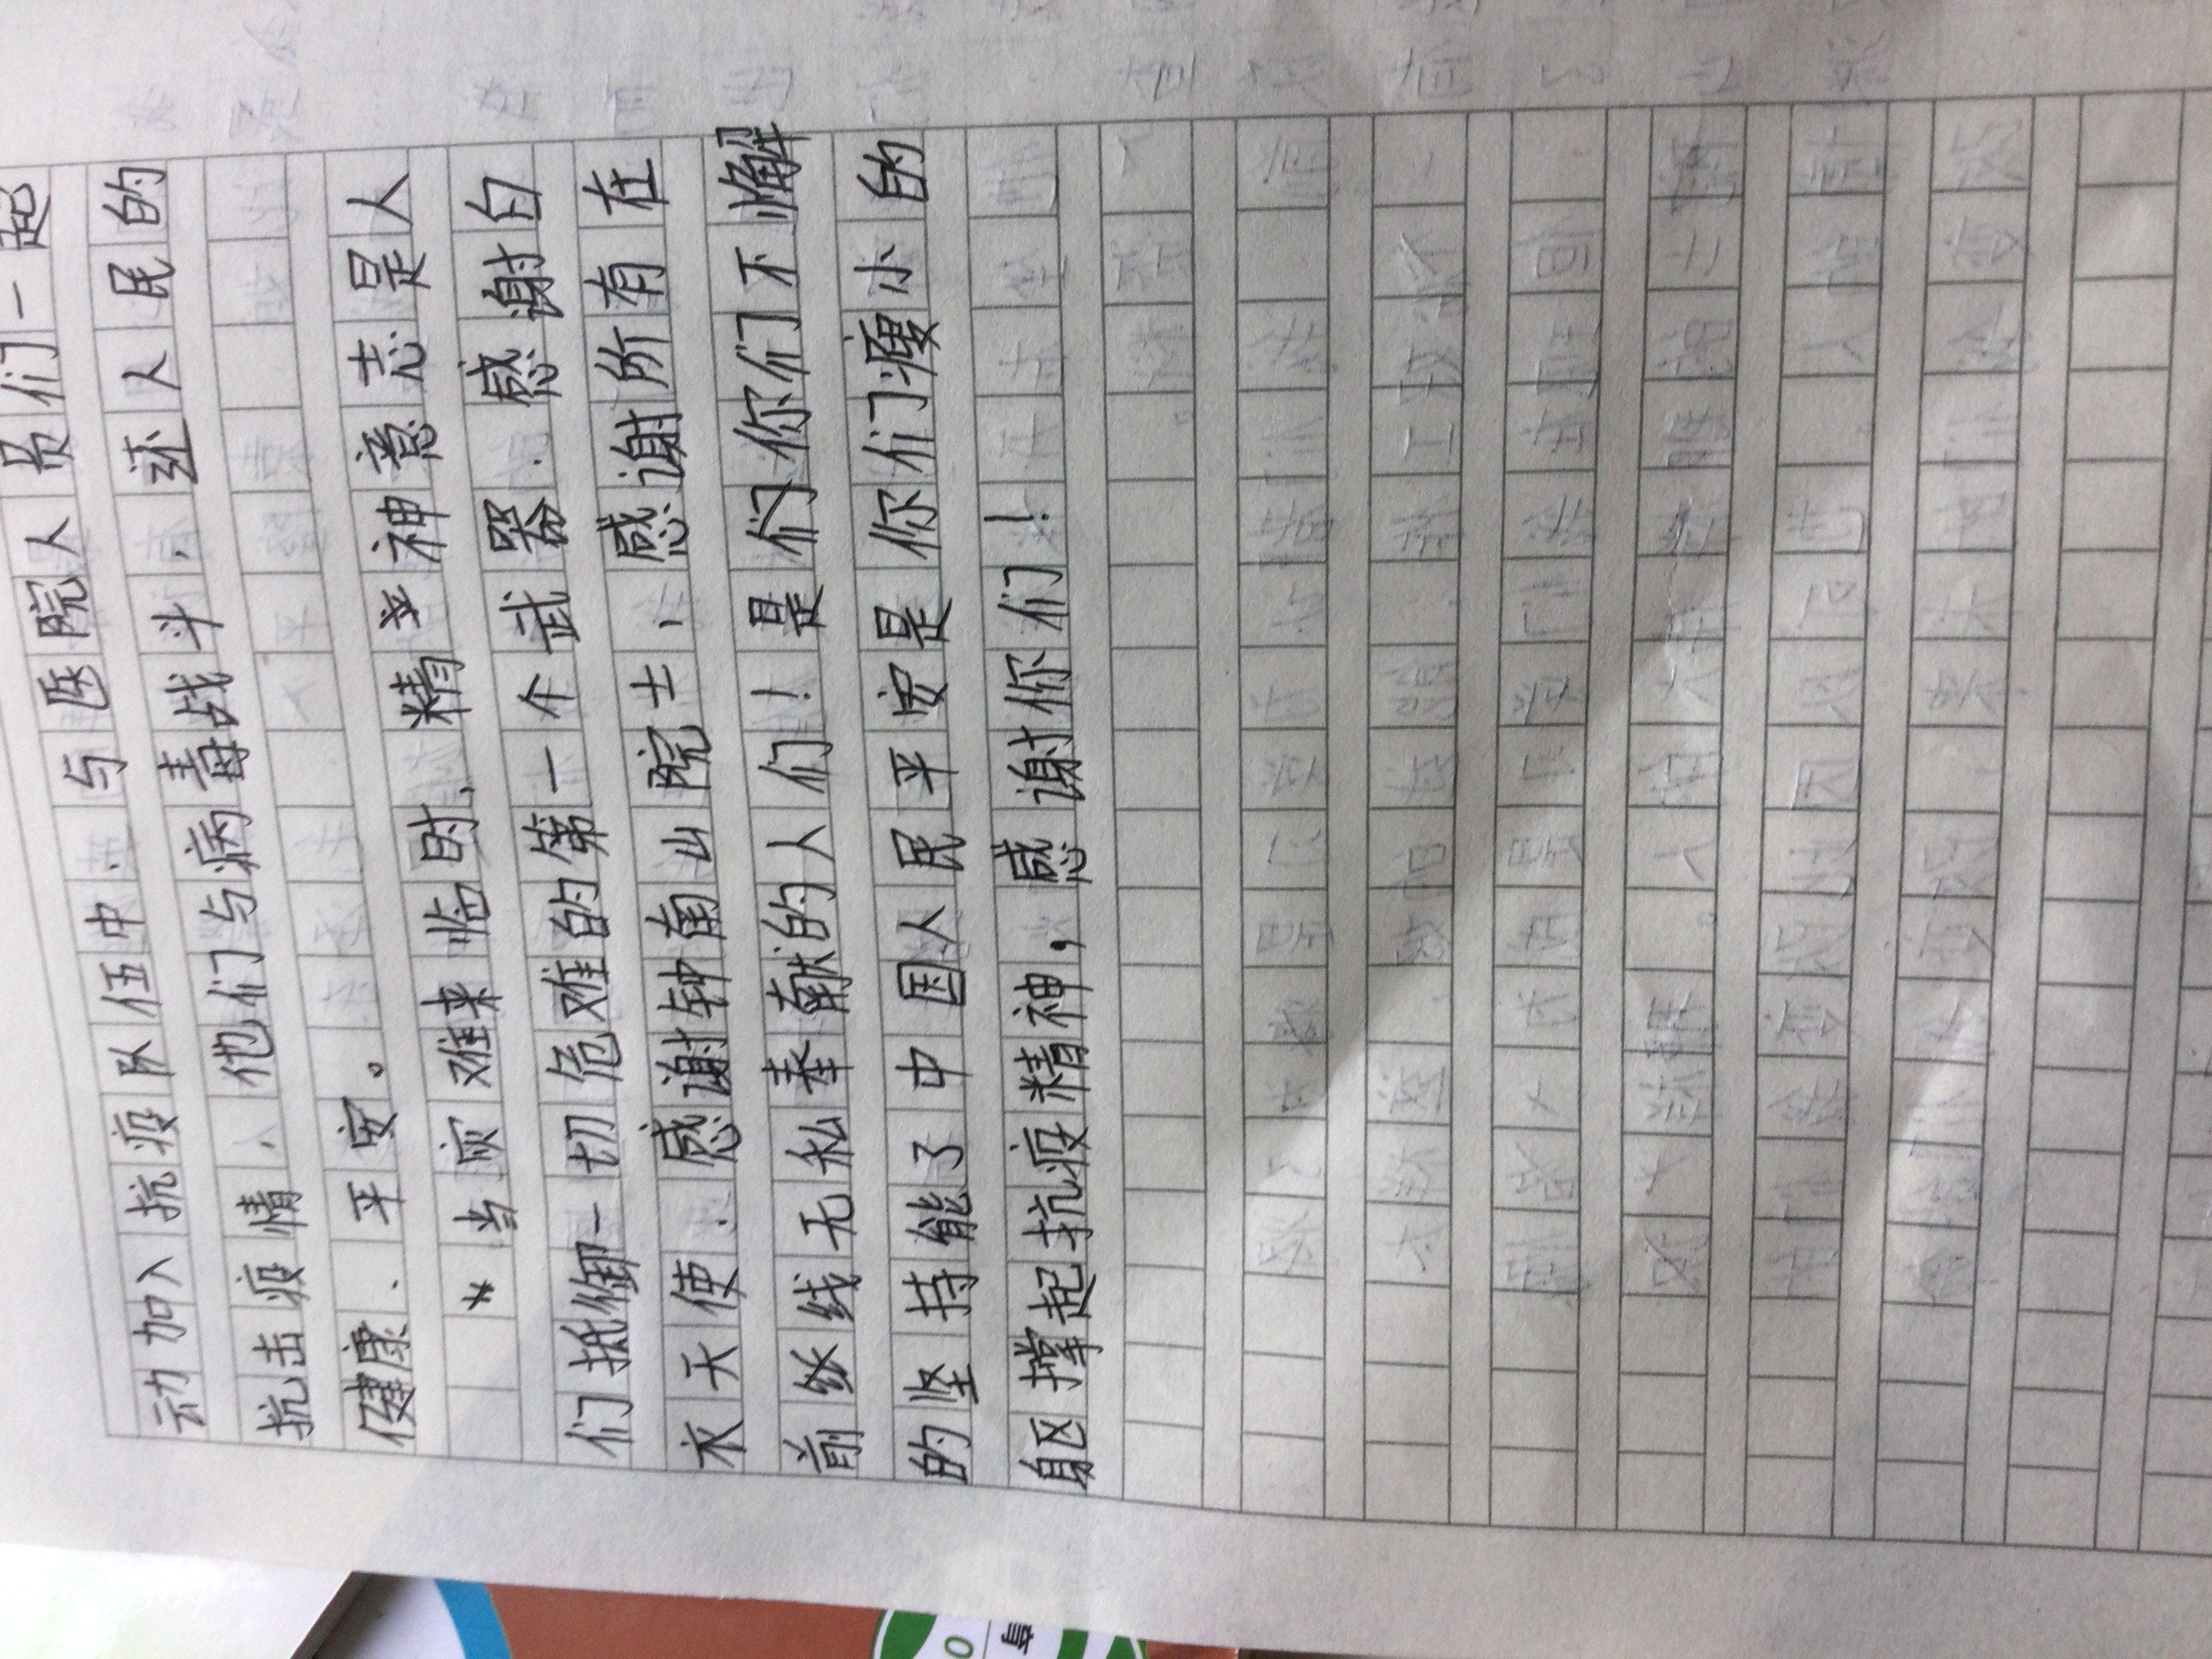 动加入抗疫队伍中.与医院人员们一起
抗击疫情,他们与病毒战斗.还人民的
健康.平安。
*当灾难来临时、精*神意志是人
们抵御一切危难的第一个武器.感谢白
衣天使.感谢钟南山院士、感谢所有在
前线无私奉献的人们!是们你们不懈
的坚持能了中国人民平安是你们瘦小的
身区撑起抗疫精神,感谢你们!
育
0